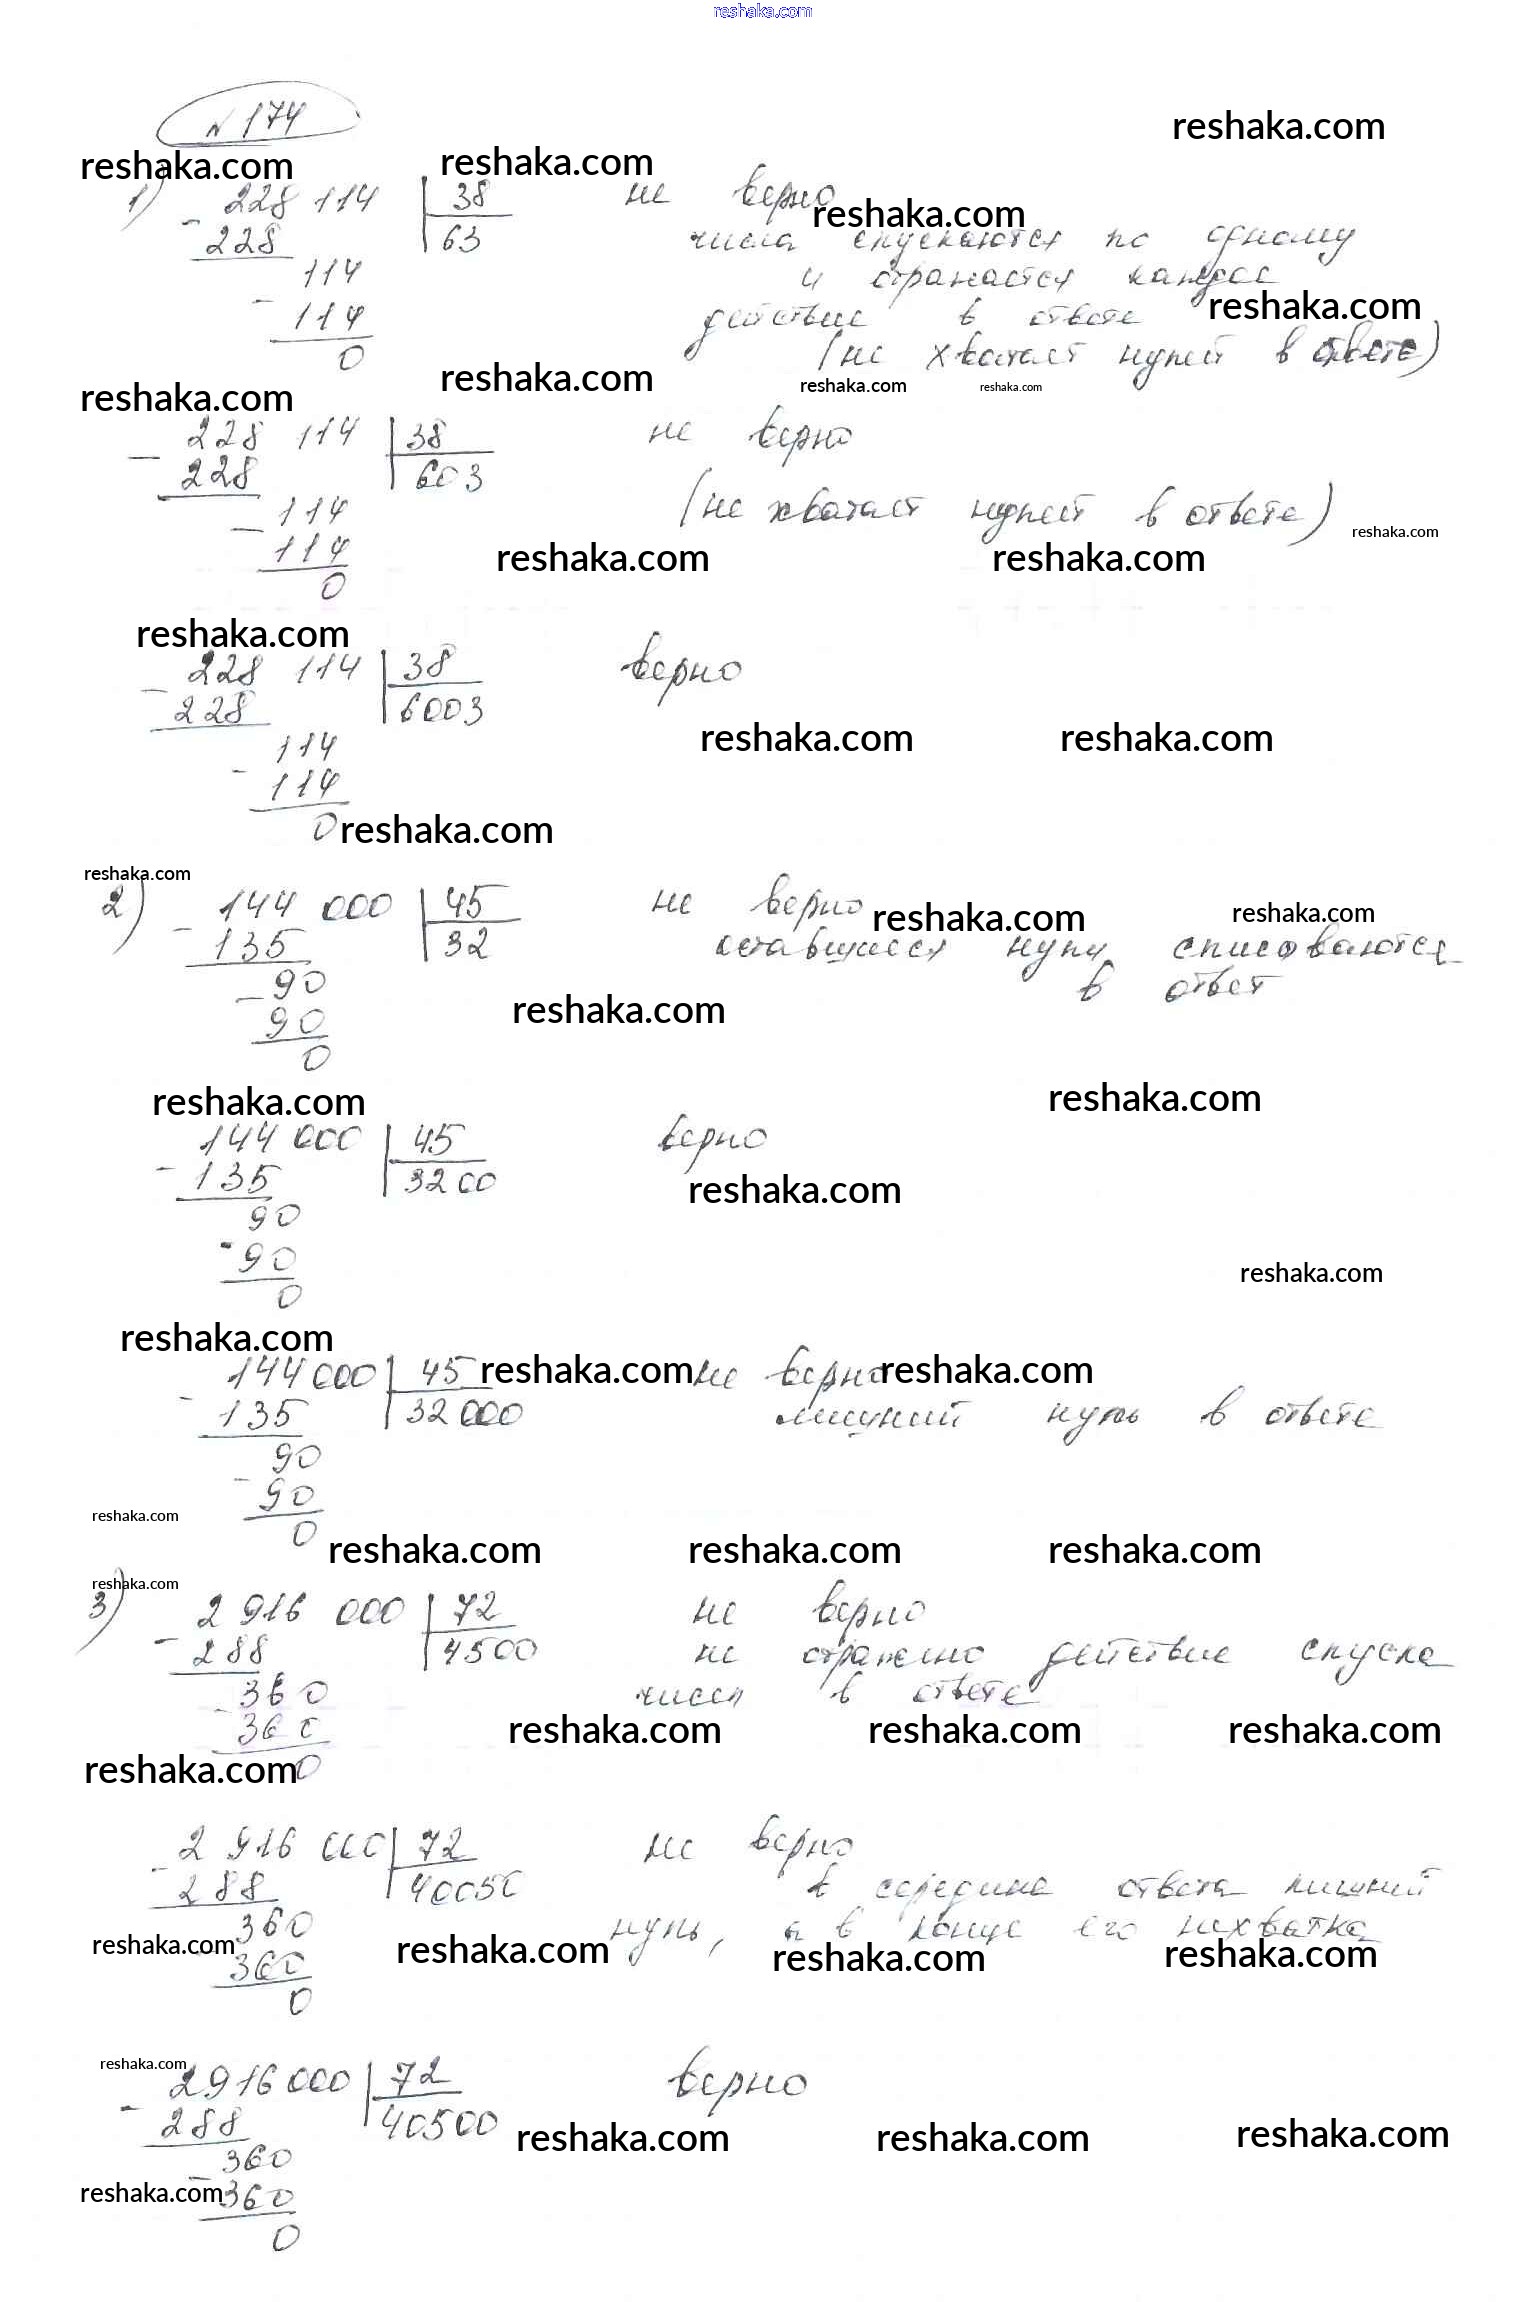 reshaka.com
N 174
reshaka.com
reshaka.com reshaka.com
1) - 228 114 | 38 не верно
reshaka.com
228 63 числа спускаются по одному
114 и отражается каждое
- 114 действие в ответе reshaka.com
0 (не хватает нулей в ответе)
reshaka.com reshaka.com reshaka.com reshaka.com
- 228 114 | 38 не верно
228 603
114 (не хватает нулей в ответе) reshaka.com
- 114
reshaka.com reshaka.com
0
reshaka.com
- 228 114 | 38 верно
228 6003
reshaka.com reshaka.com
114
- 114
0 reshaka.com
reshaka.com
2) - 144 000 | 45 не верно reshaka.com reshaka.com
135 32 оставшиеся нули списоваются
- 90 в ответ
90 reshaka.com
0
reshaka.com reshaka.com
- 144 000 | 45 верно
135 3200 reshaka.com
90
- 90 reshaka.com
0
reshaka.com
- 144 000 | 45 reshaka.com не верно reshaka.com
135 32 000 лишний нуль в ответе
90
- 90
reshaka.com
0
reshaka.com reshaka.com reshaka.com
reshaka.com
3) - 2 916 000 | 72 не верно
288 4500 не отражено действие спуска
360 чисел в ответе
- 360 reshaka.com reshaka.com reshaka.com
reshaka.com 0
- 2 916 000 | 72 не верно
288 40050 в середине ответа лишний
360 нуль, а в конце его нехватка
reshaka.com reshaka.com reshaka.com reshaka.com
- 360
0
reshaka.com
- 2916 000 | 72 верно
288 40500 reshaka.com reshaka.com reshaka.com
360
reshaka.com - 360
0